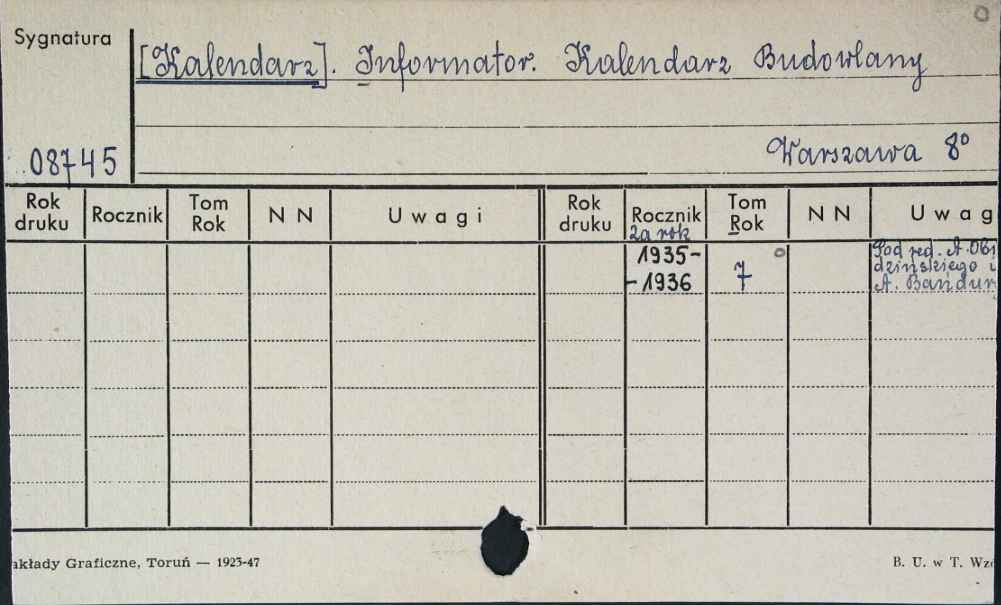 Sygnatura
[Kalendarz]. Informator. Kalendarz Budowlany
08745
Warszawa 8º
Rok druku Rocznik Tom Rok N N Uwagi Rok druku Rocznik Tom Rok N N Uwag
za rok
1935-
-1936 7
Pod red. A. Ob
dzińskiego i
A. Bandur
akłady Graficzne, Toruń — 1923-47
B. U. w T. Wzó